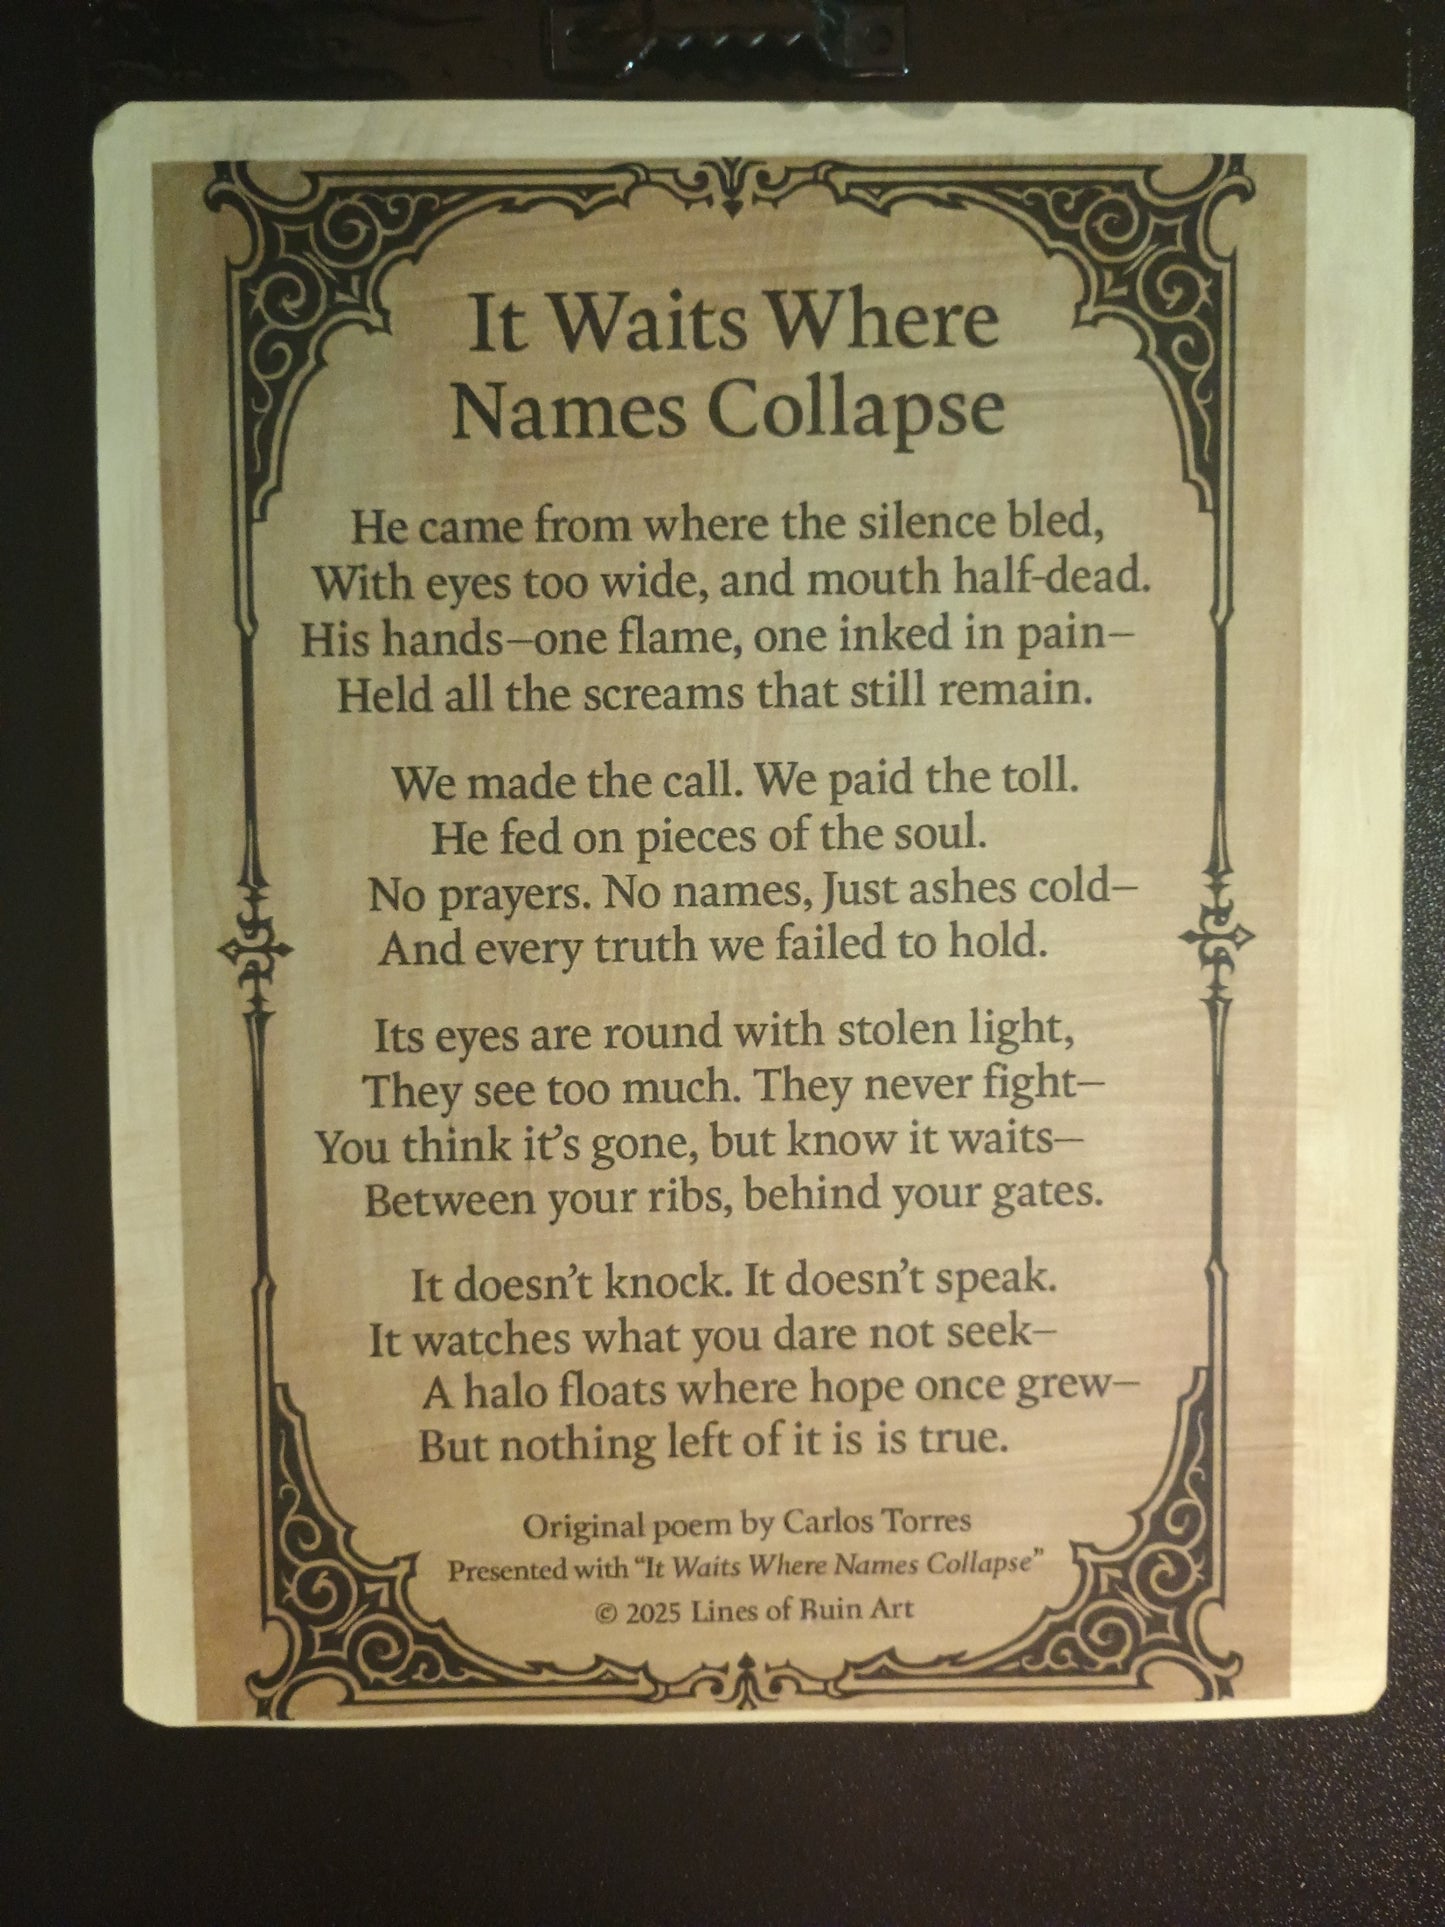 It Waits Where
Names Collapse
He came from where the silence bled,
With eyes too wide, and mouth half-dead.
His hands—one flame, one inked in pain—
Held all the screams that still remain.
We made the call. We paid the toll.
He fed on pieces of the soul.
No prayers. No names, Just ashes cold—
And every truth we failed to hold.
Its eyes are round with stolen light,
They see too much. They never fight—
You think it’s gone, but know it waits—
Between your ribs, behind your gates.
It doesn’t knock. It doesn’t speak.
It watches what you dare not seek—
A halo floats where hope once grew—
But nothing left of it is is true.
Original poem by Carlos Torres
Presented with “It Waits Where Names Collapse”
© 2025 Lines of Ruin Art